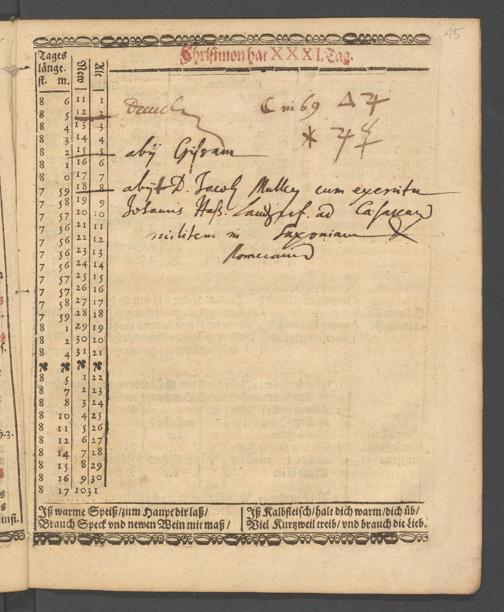 45
Christmon hat XXXI. Tag.
Tages
länge.
st. m.
New
Alt
8 6 11 1
8 5 12 2
8 4 13 3
8 3 14 4
8 2 15 5
8 1 16 6
8 0 17 7
7 59 18 8
7 58 19 9
7 57 20 10
7 56 21 11
7 56 22 12
7 56 23 13
7 56 24 14
7 56 25 15
7 57 26 16
7 58 27 17
7 59 28 18
8 1 29 19
8 2 30 20
8 4 31 21
8 5 1 22
8 7 2 23
8 8 3 24
8 10 4 25
8 11 5 26
8 12 6 27
8 14 7 28
8 15 8 29
8 16 9 30
8 17 10 31
☾ in 69 △ ♃
⚹ ♃ ☿
abij
abijt D. Jacob Mulley cum exercitu
Johannis ad
militem in Saxoniam
Iß warme Speiß / zum Haupt dir laß /
Brauch Speck vnd newen Wein mit maß /
Iß Kalbfleisch / halt dich warm / dich üb /
Viel Kurzweil treib / vnd brauch die Lieb.